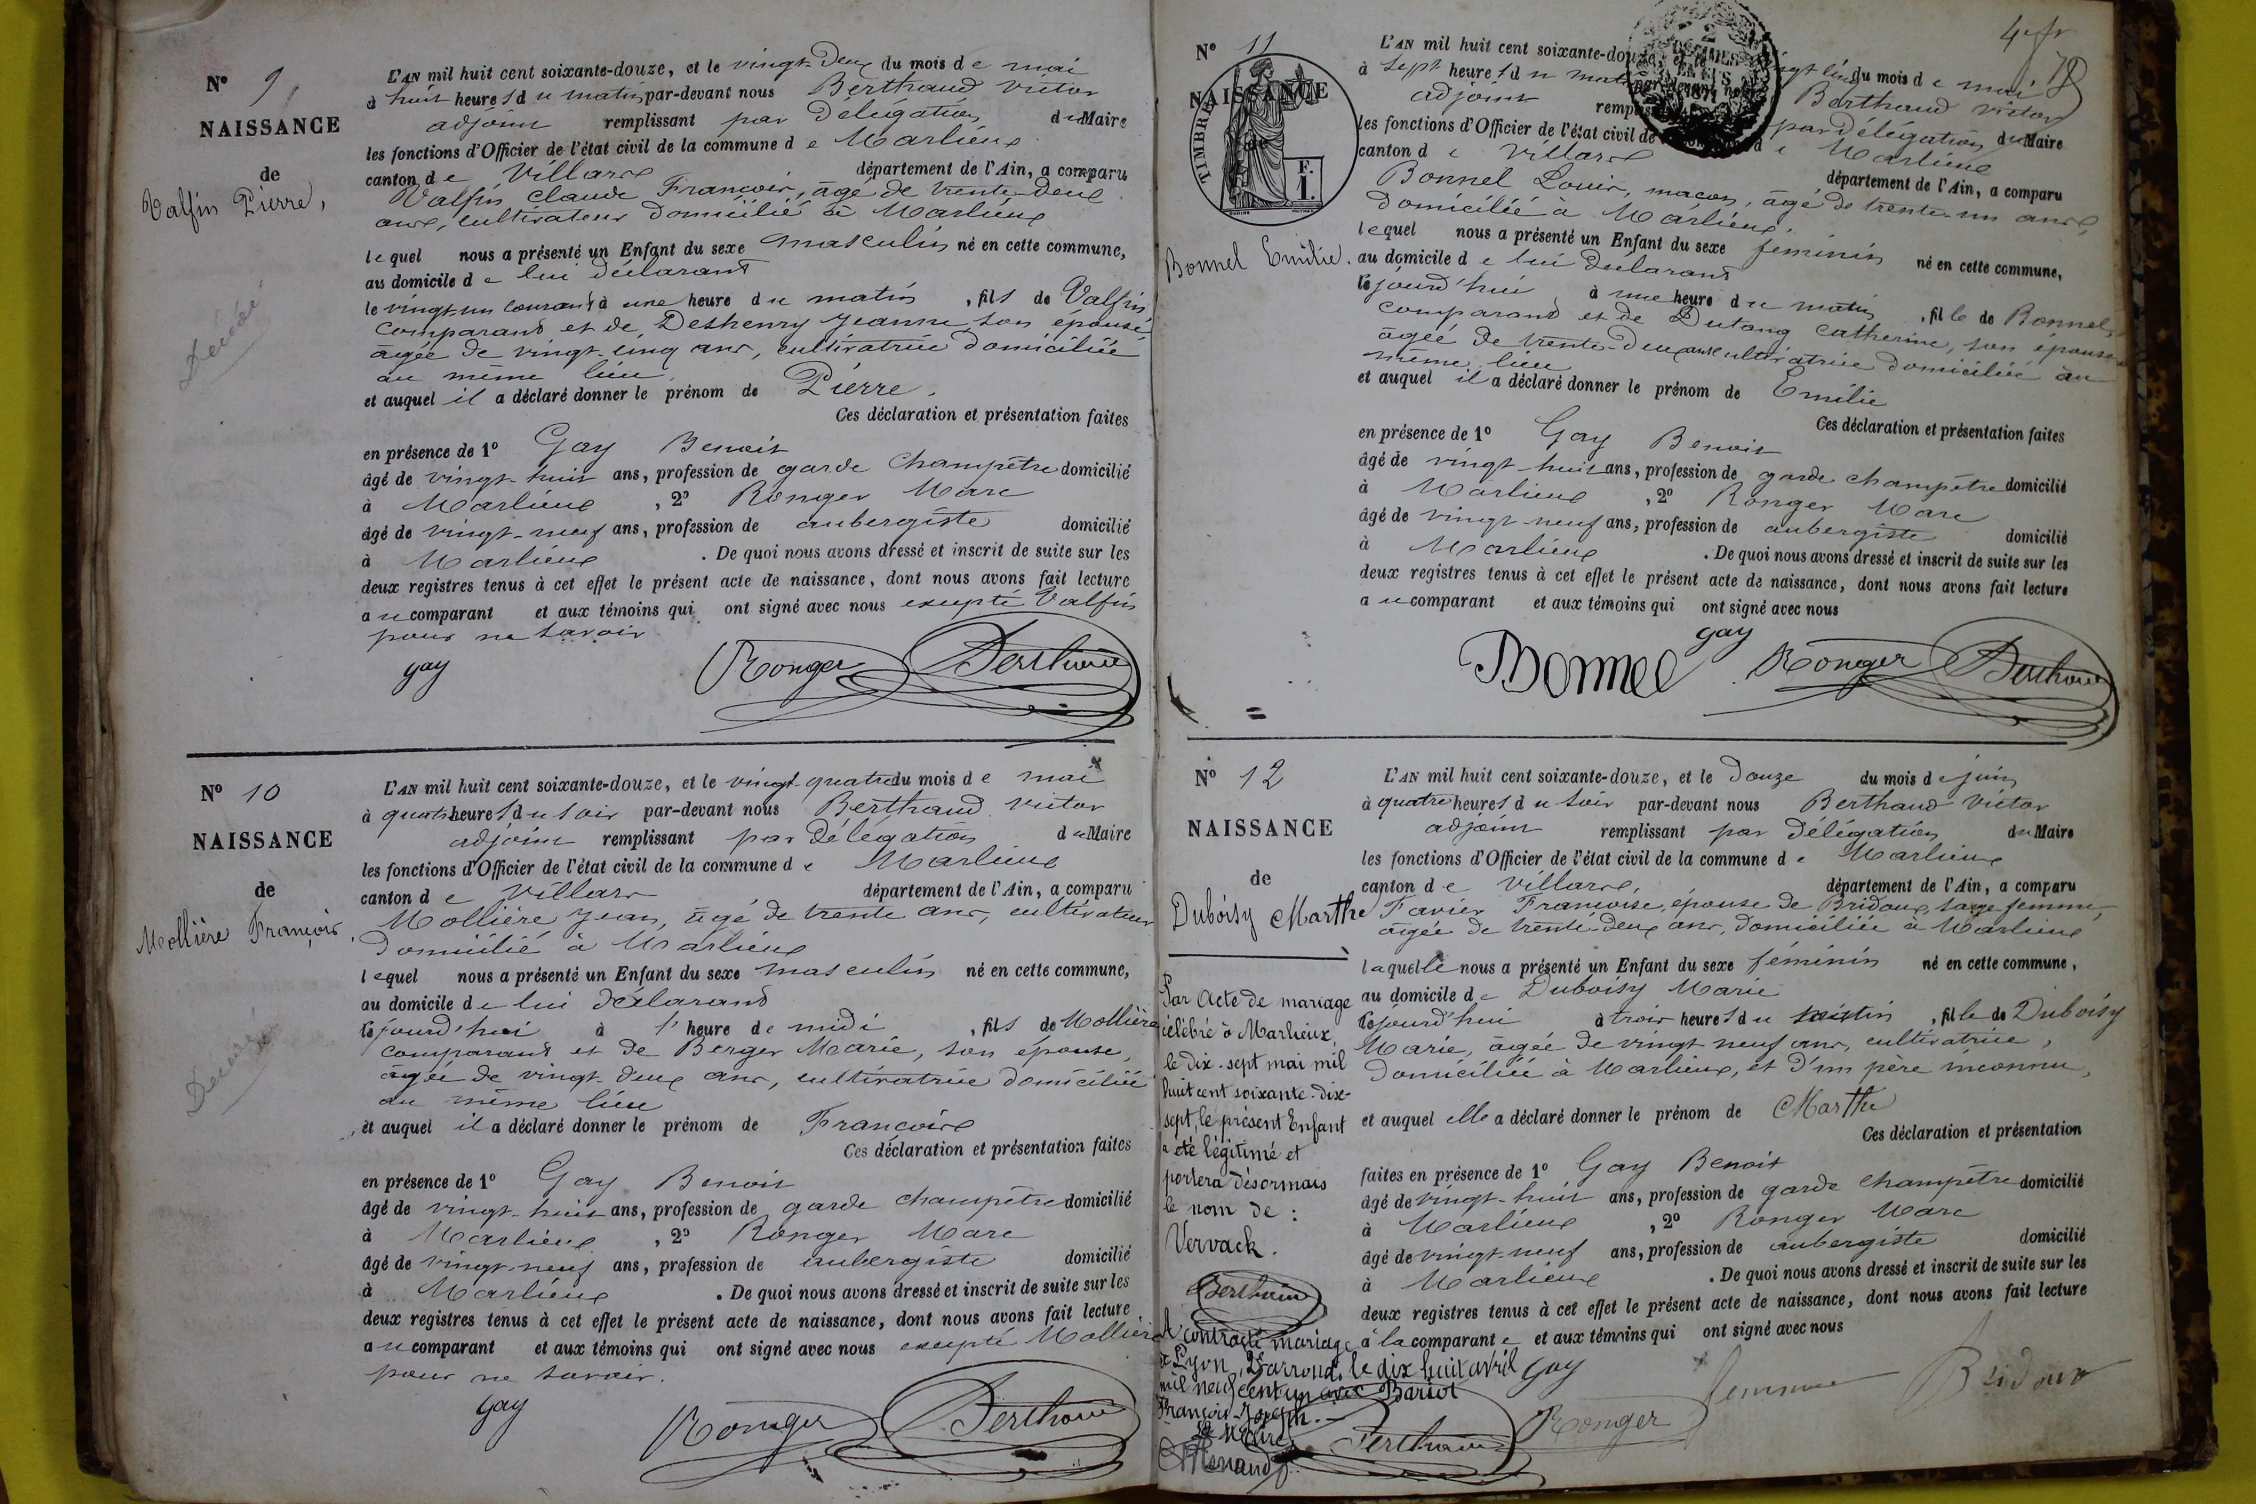 N° 9
NAISSANCE
de
Valfin Pierre,
Décédé
L'AN mil huit cent soixante-douze, et le vingt-deux du mois de mai
à huit heures du matin par-devant nous Berthaud Victor
adjoint remplissant par délégation du Maire
les fonctions d'Officier de l'état civil de la commune de Marlieux
canton de Villars département de l'Ain, a comparu
Valfin Claude François, âgé de trente-deux
ans, cultivateur domicilié à Marlieux
lequel nous a présenté un Enfant du sexe masculin né en cette commune,
au domicile de lui déclarant
le vingt-un courant à une heure du matin, fils de Valfin
comparant et de Deshenry Jeanne, son épouse
âgée de vingt-cinq ans, cultivatrice domiciliée
au même lieu
et auquel il a déclaré donner le prénom de Pierre.
Ces déclaration et présentation faites
en présence de 1° Gay Benoit
âgé de vingt-huit ans, profession de garde champêtre domicilié
à Marlieux, 2° Ronger Marc
âgé de vingt-neuf ans, profession de aubergiste domicilié
à Marlieux. De quoi nous avons dressé et inscrit de suite sur les
deux registres tenus à cet effet le présent acte de naissance, dont nous avons fait lecture
au comparant et aux témoins qui ont signé avec nous excepté Valfin
pour ne savoir
Gay Ronger Berthaud
N° 10
NAISSANCE
de
Mollière François,
Décédé
L'AN mil huit cent soixante-douze, et le vingt-quatre du mois de mai
à quatre heures du soir par-devant nous Berthaud Victor
adjoint remplissant par délégation du Maire
les fonctions d'Officier de l'état civil de la commune de Marlieux
canton de Villars département de l'Ain, a comparu
Mollière Jean, âgé de trente ans, cultivateur
domicilié à Marlieux
lequel nous a présenté un Enfant du sexe masculin né en cette commune,
au domicile de lui déclarant
cejourd'hui à l'heure de midi, fils de Mollière
comparant et de Berger Marie, son épouse,
âgée de vingt-deux ans, cultivatrice domiciliée
au même lieu
et auquel il a déclaré donner le prénom de François
Ces déclaration et présentation faites
en présence de 1° Gay Benoit
âgé de vingt-huit ans, profession de garde champêtre domicilié
à Marlieux, 2° Ronger Marc
âgé de vingt-neuf ans, profession de aubergiste domicilié
à Marlieux. De quoi nous avons dressé et inscrit de suite sur les
deux registres tenus à cet effet le présent acte de naissance, dont nous avons fait lecture
au comparant et aux témoins qui ont signé avec nous excepté Mollière
pour ne savoir.
Gay Ronger Berthaud
N° 11
NAISSANCE
de
TIMBRE
F.
1.
Bonnel Emilie.
2 DÉCIMES EN SUS
L'AN mil huit cent soixante-douze, et le vingt cinq du mois de mai
à sept heures du matin par-devant nous Berthaud Victor
adjoint remplissant par délégation du Maire
les fonctions d'Officier de l'état civil de la commune de Marlieux
canton de Villars département de l'Ain, a comparu
Bonnel Louis, maçon, âgé de trente-un ans,
domicilié à Marlieux,
lequel nous a présenté un Enfant du sexe féminin né en cette commune,
au domicile de lui déclarant
cejourd'hui à une heure du matin, fille de Bonnel,
comparant et de Dutang Catherine, son épouse
âgée de trente-deux ans cultivatrice domiciliée au
même lieu
et auquel il a déclaré donner le prénom de Emilie
Ces déclaration et présentation faites
en présence de 1° Gay Benoit
âgé de vingt-huit ans, profession de garde champêtre domicilié
à Marlieux, 2° Ronger Marc
âgé de vingt-neuf ans, profession de aubergiste domicilié
à Marlieux. De quoi nous avons dressé et inscrit de suite sur les
deux registres tenus à cet effet le présent acte de naissance, dont nous avons fait lecture
au comparant et aux témoins qui ont signé avec nous
Bonnel Gay Ronger Berthaud
N° 12
NAISSANCE
de
Duboisy Marthe
Par Acte de mariage
célébré à Marlieux,
le dix-sept mai mil
huit cent soixante-dix-
sept, le présent Enfant
a été légitimé et
portera désormais
le nom de :
Vervack.
Berthaud
A contracté mariage
à Lyon, 2e arrond. le dix huit avril
mil neuf cent un avec Bariot
François-Joseph.
Le Maire
L'AN mil huit cent soixante-douze, et le douze du mois de juin
à quatre heures du soir par-devant nous Berthaud Victor
adjoint remplissant par délégation du Maire
les fonctions d'Officier de l'état civil de la commune de Marlieux
canton de Villars, département de l'Ain, a comparu
Favier Françoise, épouse de Bridoux, sage femme,
âgée de trente-deux ans, domiciliée à Marlieux
laquelle nous a présenté un Enfant du sexe féminin né en cette commune,
au domicile de Duboisy Marie
cejourd'hui à trois heures du matin, fille de Duboisy
Marie, âgée de vingt neuf ans, cultivatrice,
domiciliée à Marlieux, et d'un père inconnu,
et auquel elle a déclaré donner le prénom de Marthe
Ces déclaration et présentation
faites en présence de 1° Gay Benoit
âgé de vingt-huit ans, profession de garde champêtre domicilié
à Marlieux, 2° Ronger Marc
âgé de vingt-neuf ans, profession de aubergiste domicilié
à Marlieux. De quoi nous avons dressé et inscrit de suite sur les
deux registres tenus à cet effet le présent acte de naissance, dont nous avons fait lecture
à la comparante et aux témoins qui ont signé avec nous
Gay femme Bridoux
Ronger Berthaud